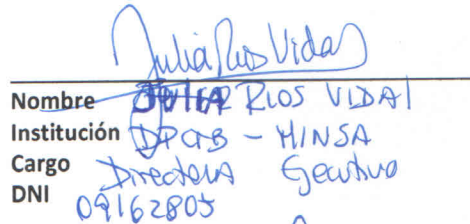 Julia Rios Vidal
Nombre JULIA RIOS VIDAL
Institución - MINSA
Cargo Directora Ejecutiva
DNI
09162805